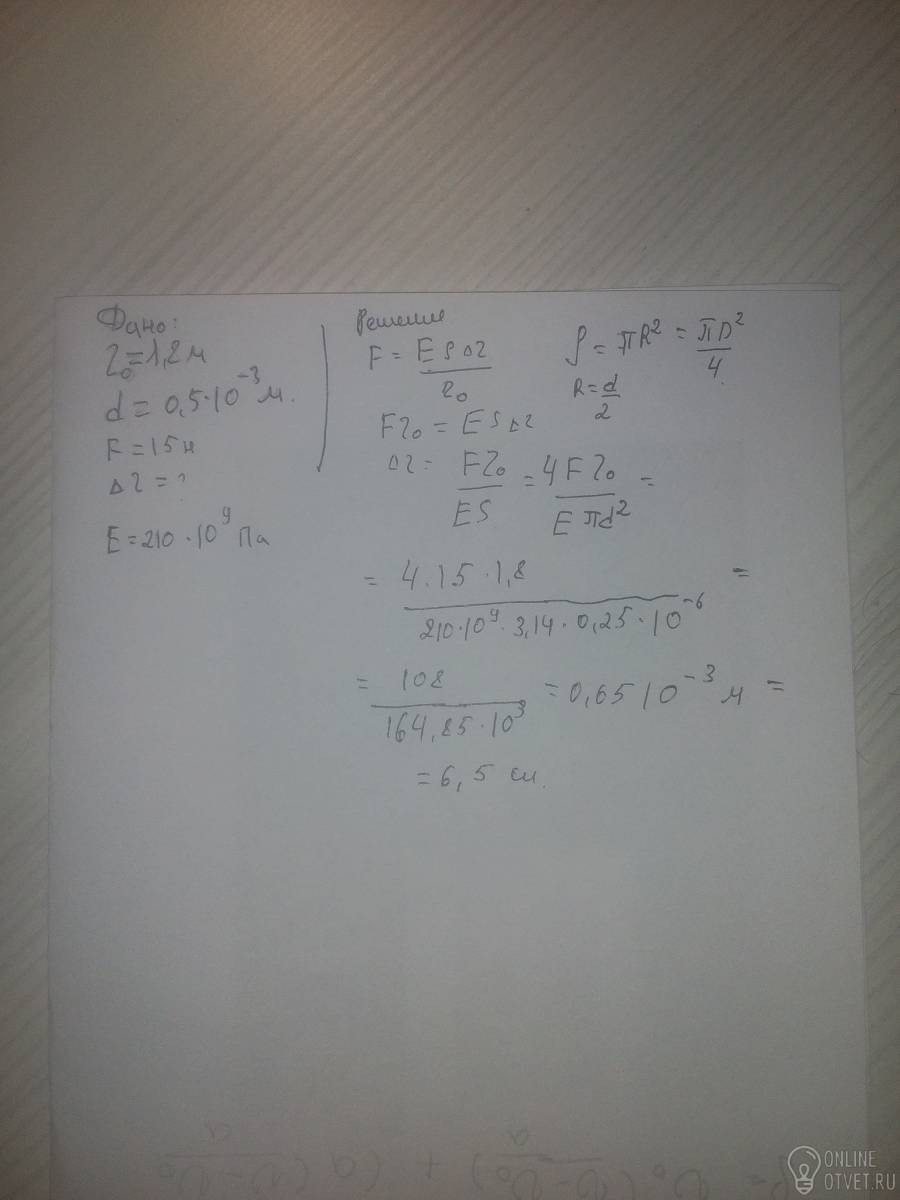 Дано:
l₀ = 1,2 м
d = 0,5·10⁻³ м.
F = 15 н
Δl = ?
E = 210·10⁹ Па
Решение
F = ESΔl / l₀
S = πR² = πD² / 4
R = d / 2
Fl₀ = ESΔl
Δl = Fl₀ / ES = 4Fl₀ / Eπd² =
= 4·15·1,8 / 210·10⁹·3,14·0,25·10⁻⁶ =
= 108 / 164,85·10³ = 0,65 10⁻³ м =
= 6,5 см.
ONLINE
OTVET.RU